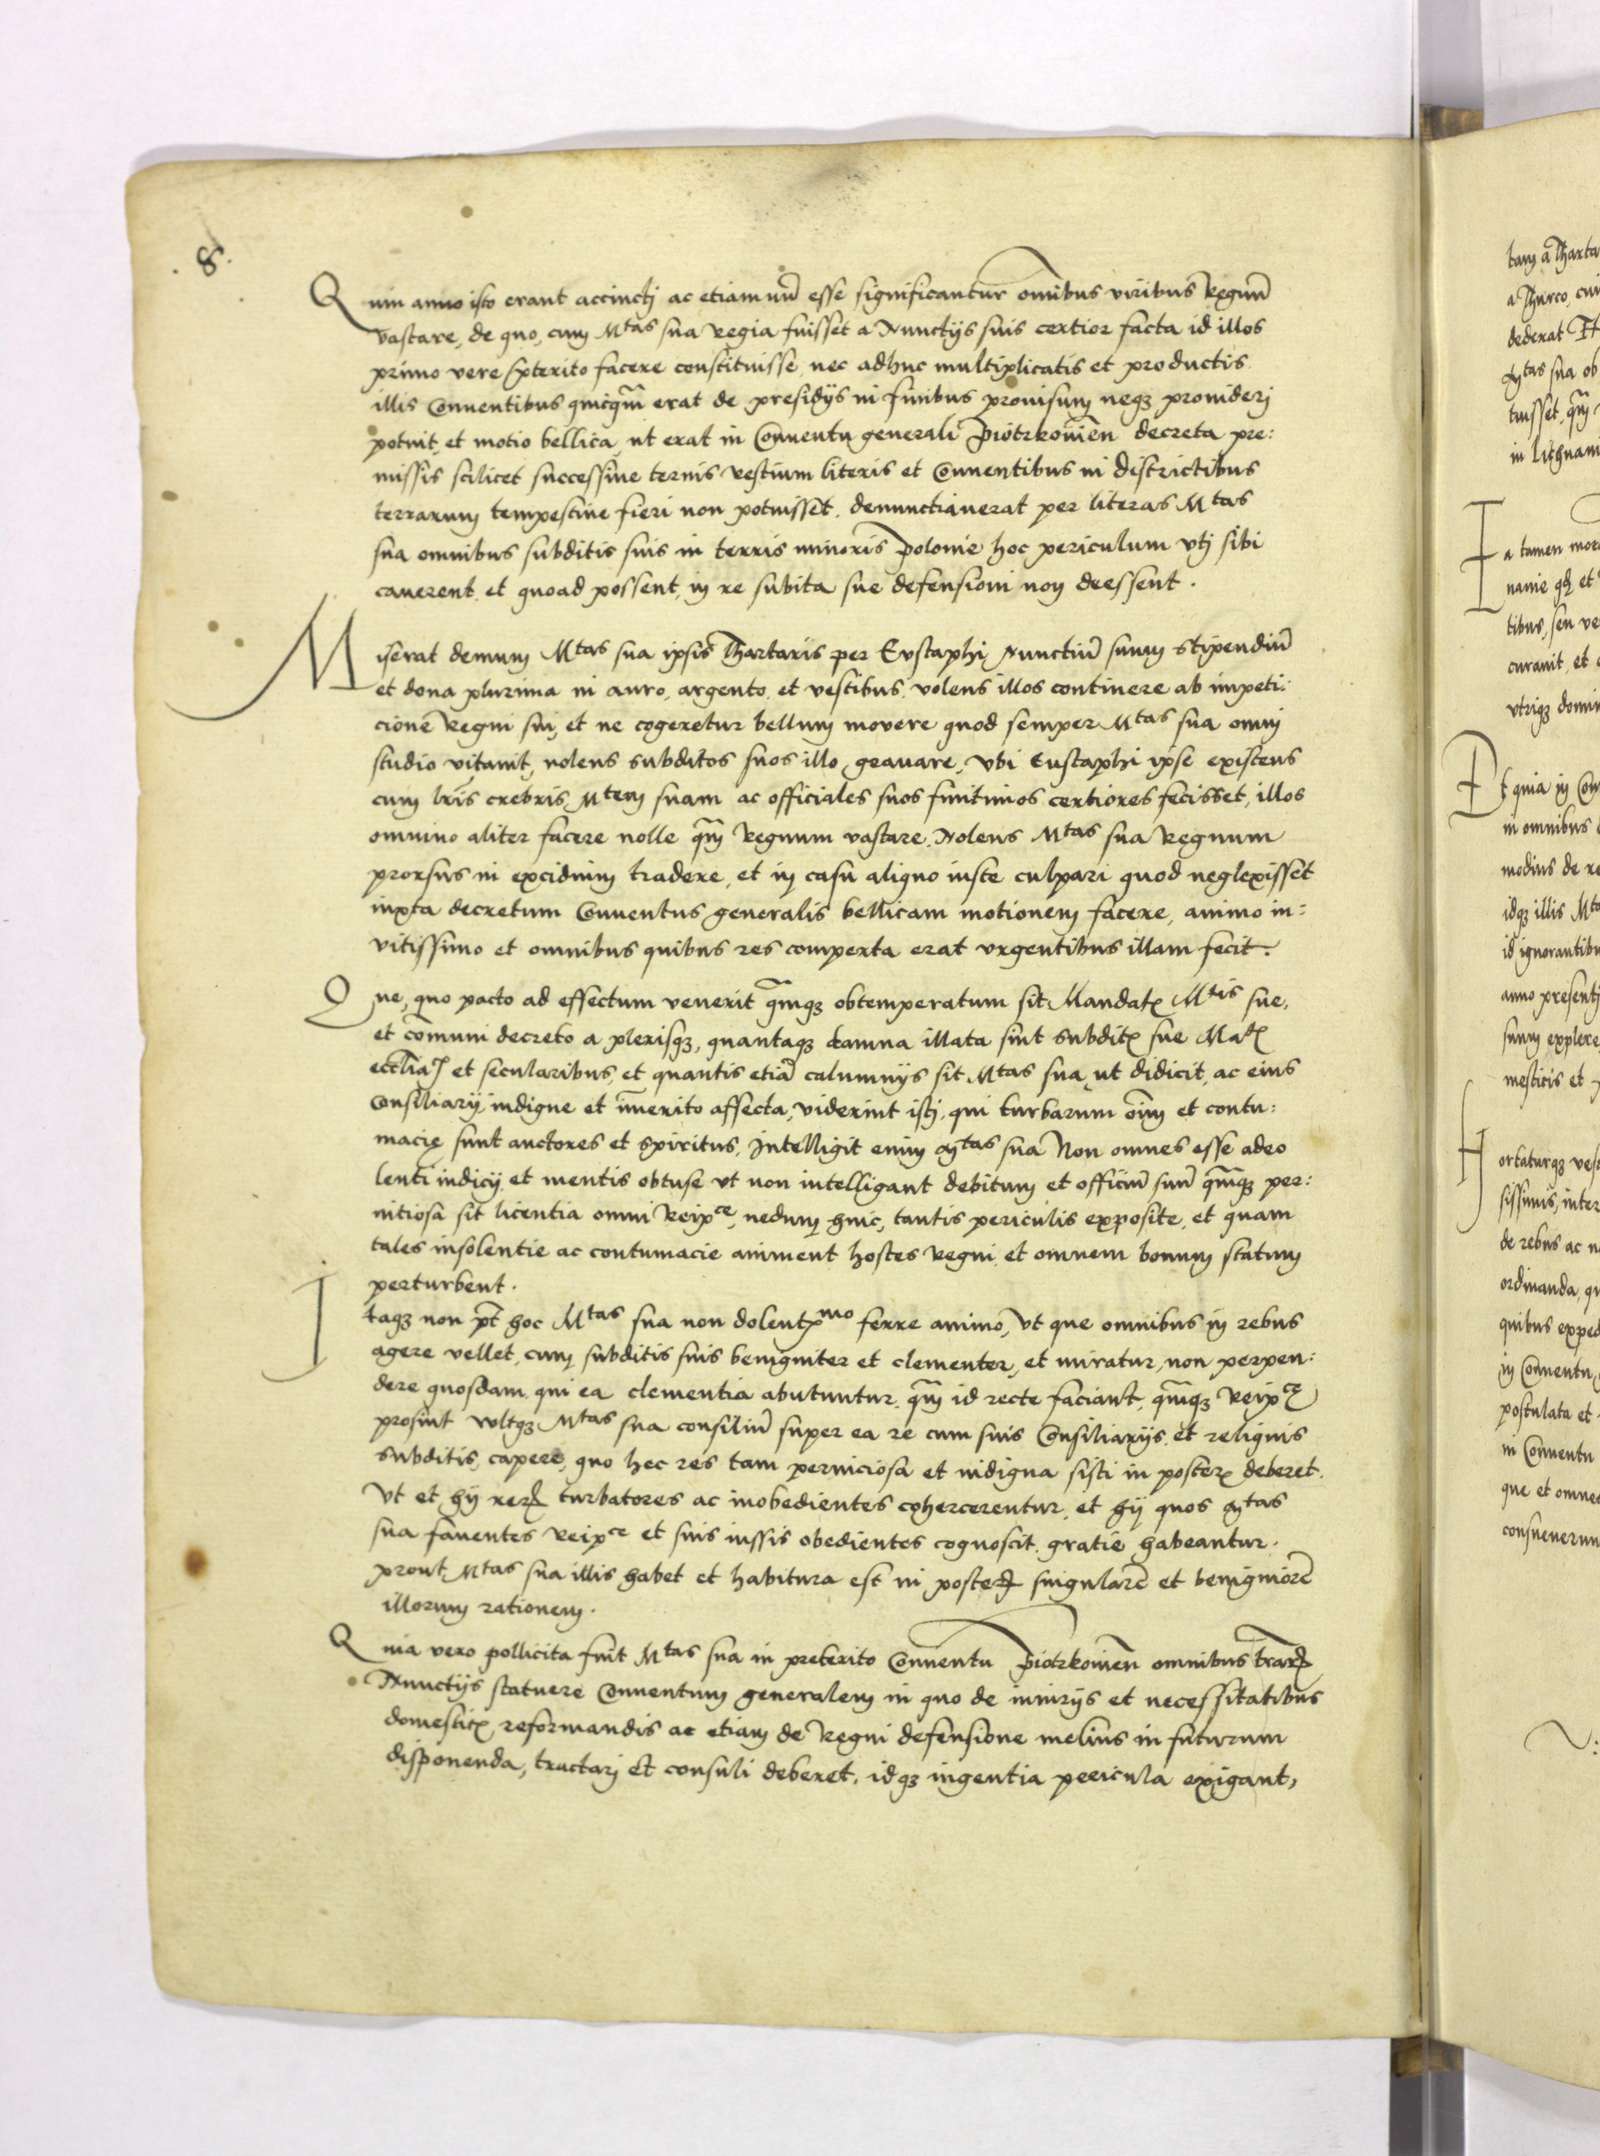 .8.
Quin anno isto erant accinctj ac etiam nūc esse significantur omībus viribus Regnū
vastare, de quo, cum Mtas sua Regia fuisset a Nunctijs suis certior facta id illos
primo vere p̄terito facere constituisse, nec adhuc multiplicatis et productis
illis Conventibus quicq̄m erat de presidijs in finibus provisum neqꝫ providerj
potuit, et motio bellica, ut erat in Conventu generali Piotrkovien̄ decreta pre:
missis scilicet successive ternis restium literis et Conventibus in districtibus
terrarum tempestive fieri non potuisset, denunctiaverat per literas Mtas
sua omnibus subditis suis in terris minoris Polonie hoc periculum vtj sibi
caverent, et quoad possent, in re subita sue defensioni non deessent.
Miserat demum Mtas sua ipsis Thartaris per Evstaphi Nunctiū suum stipendiū
et dona plurima in auro, argento, et vestibus, volens illos continere ab impeti:
cionē Regni sui, et ne cogeretur bellum movere quod semper Mtas sua omni
studio vitavit, nolens subditos suos illo gravare, vbi Eustaphi ipse existens
cum lr̄is crebris, Mtem suam ac officiales suos finitimos certiores fecisset, illos
omnino aliter facere nolle q̄m Regnum vastare. Nolens Mtas sua Regnum
prorsus in excidium tradere, et in casu aliquo iuste culpari quod neglexisset
iuxta decretum Conventus generalis bellicam motionem facere, animo in:
vitissimo et omnibus quibus res comperta erat vrgentibus illam fecit.
Que, quo pacto ad effectum venerit q̄mqꝫ obtemperatum sit Mandatꝭ Mtis sue,
et com̄uni decreto a plerisqꝫ, quantaqꝫ damna illata sint subditꝭ sue Matꝭ
eccl̄iaꝭ et secularibus, et quantis etiā calumnijs sit Mtas sua, ut didicit, ac eius
Consiliarij indigne et im̄erito affecta, viderint istj, qui turbarum oīm et contu:
macię sunt auctores et spiritus, Intelligit enim Mtas sua Non omnes esse adeo
lenti iudicij et mentis obtuse vt non intelligant debitum et officiū suū q̄mqꝫ per:
nitiosa sit licentia omni Reipce, nedum huic, tantis periculis exposite, et quam
tales insolentie ac contumacie animent hostes Regni et omnem bonum statum
perturbent.
Itaqꝫ non pt̄ hoc Mtas sua non dolentꝭmo ferre animo, Vt que omnibus in rebus
agere vellet, cum subditis suis benigniter et clementer, et miratur, non perpen:
dere quosdam, qui ea clementia abutuntur, q̄m id recte faciant, q̄mqꝫ Reipcę
prosint vultqꝫ Mtas sua consiliū super ea re cum suis Consiliarijs, et reliquis
subditis, capere, quo hec res tam perniciosa et indigna sisti in posterꝭ deberet.
Vt et hij rerꝝ turbatores ac inobedientes cohercerentur, et hij quos Mtas
sua faventes Reipce et suis iussis obedientes cognoscit, gratie habeantur.
prout Mtas sua illis habet et habitura est in posterꝝ singularē et benigniorē
illorum rationem.
Quia vero pollicita fuit Mtas sua in preterito Conventu Piotrkovien̄ omnibus tr̄arꝝ
Nunctijs statuere Conventum generalem in quo de iniurijs et necessitatibus
domesticꝭ, reformandis ac etiam de Regni defensione melius in futurum
disponenda, tractarj et consuli deberet, idqꝫ ingentia pericula exigant,
a Thurco, cui
dederat
Mtas sua ob
tuisset, q̄m
in Lithuani
Ita tamen mor
tibus, seu ve
curavit, et
vtriqꝫ domin
Et quia in Con
in omnibus
modius de re
idqꝫ illis Mta
id ignorantibu
anno presentj
suum explere
mesticis et
Hortaturqꝫ ves
sissimis, inter
de rebus ac n
ordinanda, qu
quibus exped
in Conventu
postulata et
in Conventu
que et omnes
consueverun